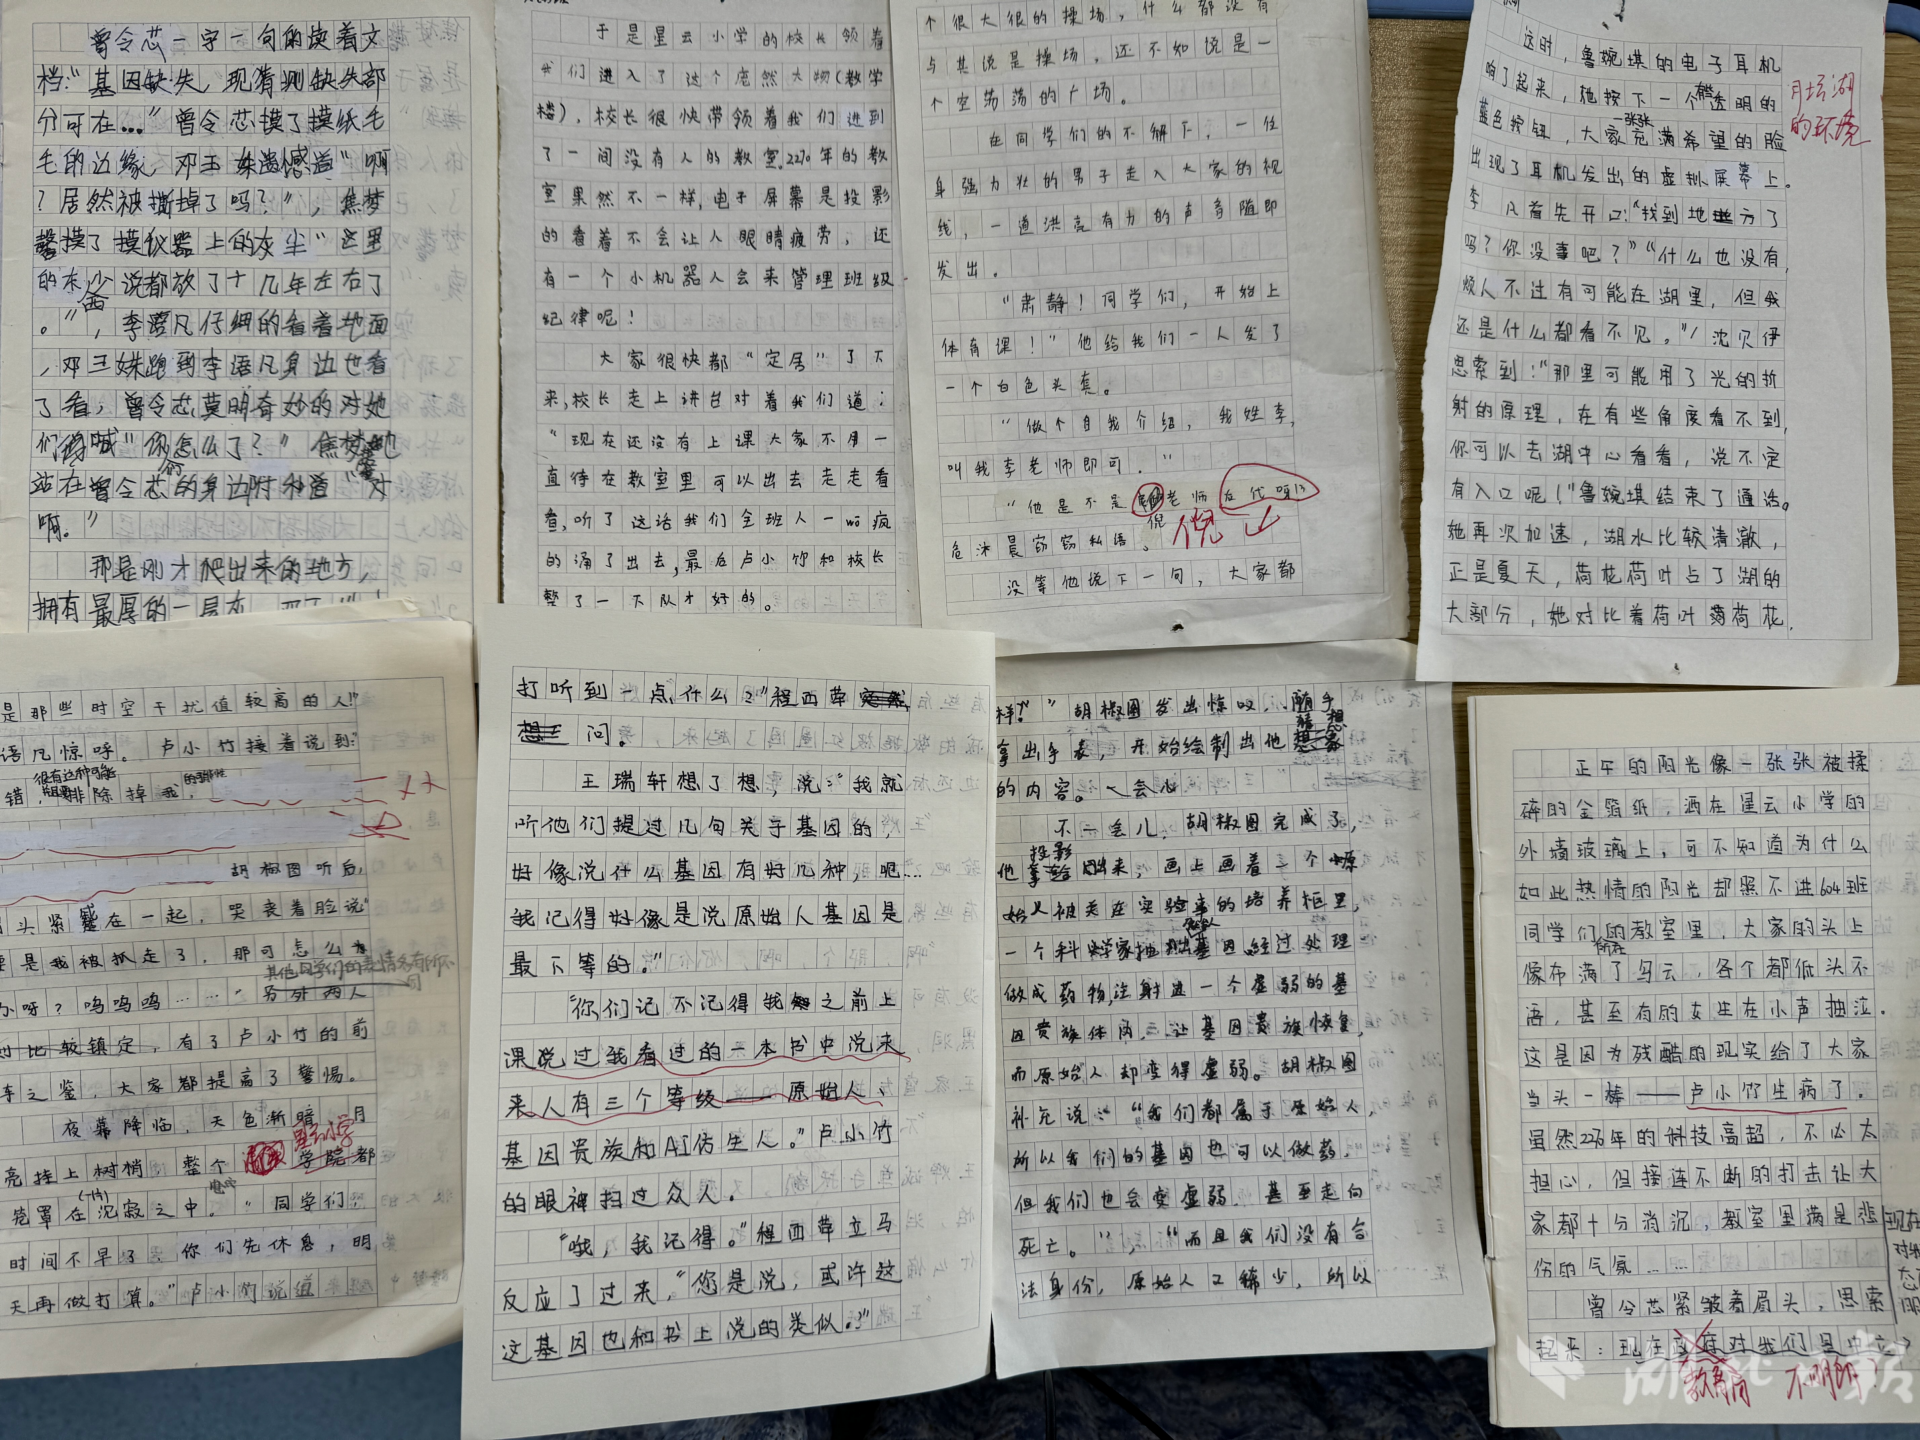 曾令芯一字一句的读着文
档:“基因缺失,现猜测缺失部
分可在...”曾令芯摸了摸纸毛
毛的边缘,邓玉姝遗憾道“啊
?居然被撕掉了吗?”,焦梦
馨摸了摸仪器上的灰尘“这里
的东西少说都放了十几年左右了
。”,李语凡仔细的看着地面
,邓玉姝跑到李语凡身边也看
了看,曾令芯莫明奇妙的对她
们喊“你们怎么了?”焦梦馨也
站在曾令芯的身边附和道“对
啊。”
那是刚才爬出来的地方,
拥有最厚的一层灰
于是星云小学的校长领着
我们进入了这个庞然大物(教学
楼),校长很快带领着我们进到
了一间没有人的教室.2270年的教
室果然不一样,电子屏幕是投影
的看着不会让人眼睛疲劳,还
有一个小机器人会来管理班级
纪律呢!
大家很快都“定居”了下
来,校长走上讲台对着我们道:
“现在还没有上课大家不用一
直待在教室里可以出去走走看
看,听了这话我们全班人一wō疯
的涌了出去,最后卢小竹和校长
整了一下队才好的。
个很大很的操场,什么都没有
与其说是操场,还不如说是一
个空荡荡的广场。
在同学们的不解下,一位
身强力壮的男子走入大家的视
线,一道洪亮有力的声音随即
发出。
“肃静!同学们,开始上
体育课!”他给我们一人发了
一个白色头套。
“做个自我介绍,我姓李,
叫我李老师即可。”
“他是不是倪老师在代呀?”
倪
危沐晨窃窃私语。
没等他说下一句,大家都
这时,鲁婉琪的电子耳机
响了起来,她按下一个透明的
蓝色按钮,大家一张张充满希望的脸
出现了耳机发出的虚拟屏幕上。
李 凡首先开口:“找到地方了
吗?你没事吧?”“什么也没有,
烦人不过有可能在湖里,但我
还是什么都看不见。”沈贝伊
思索到:“那里可能用了光的折
射的原理,在有些角度看不到,
你可以去湖中心看看,说不定
有入口呢!”鲁婉琪结束了通话。
她再次加速,湖水比较清澈,
正是夏天,荷花荷叶占了湖的
大部分,她对比着荷叶薄荷花,
月坛湖
的环境
是那些时空干扰值较高的人!”
语凡惊呼。卢小竹接着说到:“
很有这种可能
错,排除掉我,
胡椒图听后,
头紧蹙在一起,哭丧着脸说“
要是我被抓走了,那可怎么办
呀?呜呜呜……”另外两人
其他同学们的表情各有所不同
对比较镇定,有了卢小竹的前
车之鉴,大家都提高了警惕。
夜幕降临,天色渐暗,月
亮挂上树梢,整个星云小学学院都
笼罩在沉寂之中。“同学们,
时间不早了,你们先休息,明
天再做打算。”卢小竹说道
打听到一点什么?”程西苹
问。
王瑞轩想了想,说:“我就
听他们提过几句关于基因的,
好像说什么基因有好几种,呃…
我记得好像是说原始人基因是
最下等的。”
“你们记不记得我之前上
课说过我看过的一本书中说来
来人有三个等级——原始人、
基因贵族和AI仿生人。”卢小竹
的眼神扫过众人。
“哦,我记得。”程西苹立马
反应了过来,“您是说,或许这
这基因也和书上说的类似。”
样?”胡椒图发出惊叹,随手
拿出手表,开始绘制出他猜想
的内容。
不一会儿,胡椒图完成了,
他投影出来,画上画着三个原
始人被关在实验室的培养柜里,
一个科学家抽出基因,经过处理
做成药物,注射进一个虚弱的基
因贵族体内,让基因贵族恢复,
而原始人却变得虚弱。胡椒图
补充说:“我们都属于原始人,
所以我们的基因也可以做药,”
但我们也会变虚弱,甚至走向
死亡。”,“而且我们没有合
法身份,原始人又稀少,所以
正午的阳光像一张张被揉
碎的金箔纸,洒在星云小学的
外墙玻璃上,可不知道为什么
如此热情的阳光却照不进604班
同学们所在的教室里,大家的头上
像布满了乌云,各个都低头不
语,甚至有的女生在小声抽泣.
这是因为残酷的现实给了大家
当头一棒——卢小竹生病了.
虽然2276年的科技高超,不必太
担心,但接连不断的打击让大
家都十分消沉,教室里满是悲
伤的气氛……
曾令芯紧皱着眉头,思索
起来:现在政府对我们是中立
教育局 不明朗